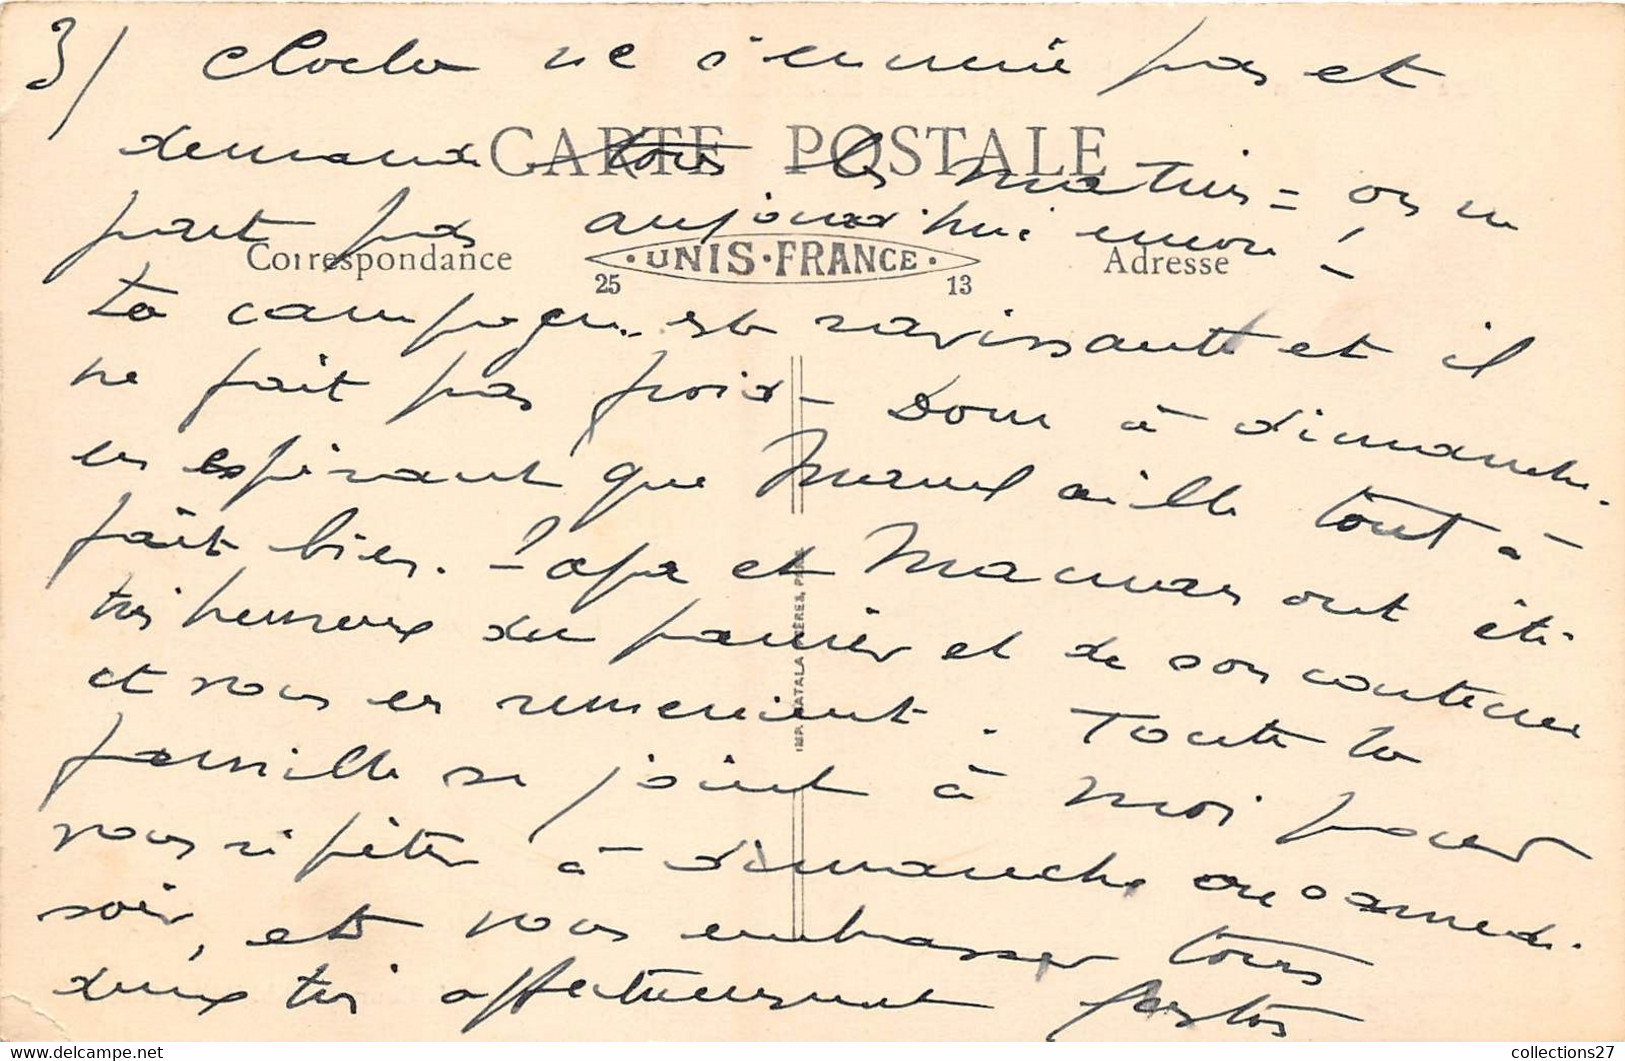 3/ Cloclo ne s'ennuie pas et
CARTE POSTALE
demande tous les matins = on ne
part pas aujourd'hui encore !
Correspondance
UNIS-FRANCE
25 13
Adresse
La campagne est ravissante et il
ne fait pas froid - Donc à dimanche.
en espérant que Marcel aille tout à
fait bien. - Papa et Maman ont été
très heureux du panier et de son contenu
et vous en remercient. Toute la
IMP. CATALA FRÈRES, PARIS
famille se joint à moi pour
vous répéter à dimanche ou samedi
soir, et vous embrasser tous
deux très affectueusement
collections27